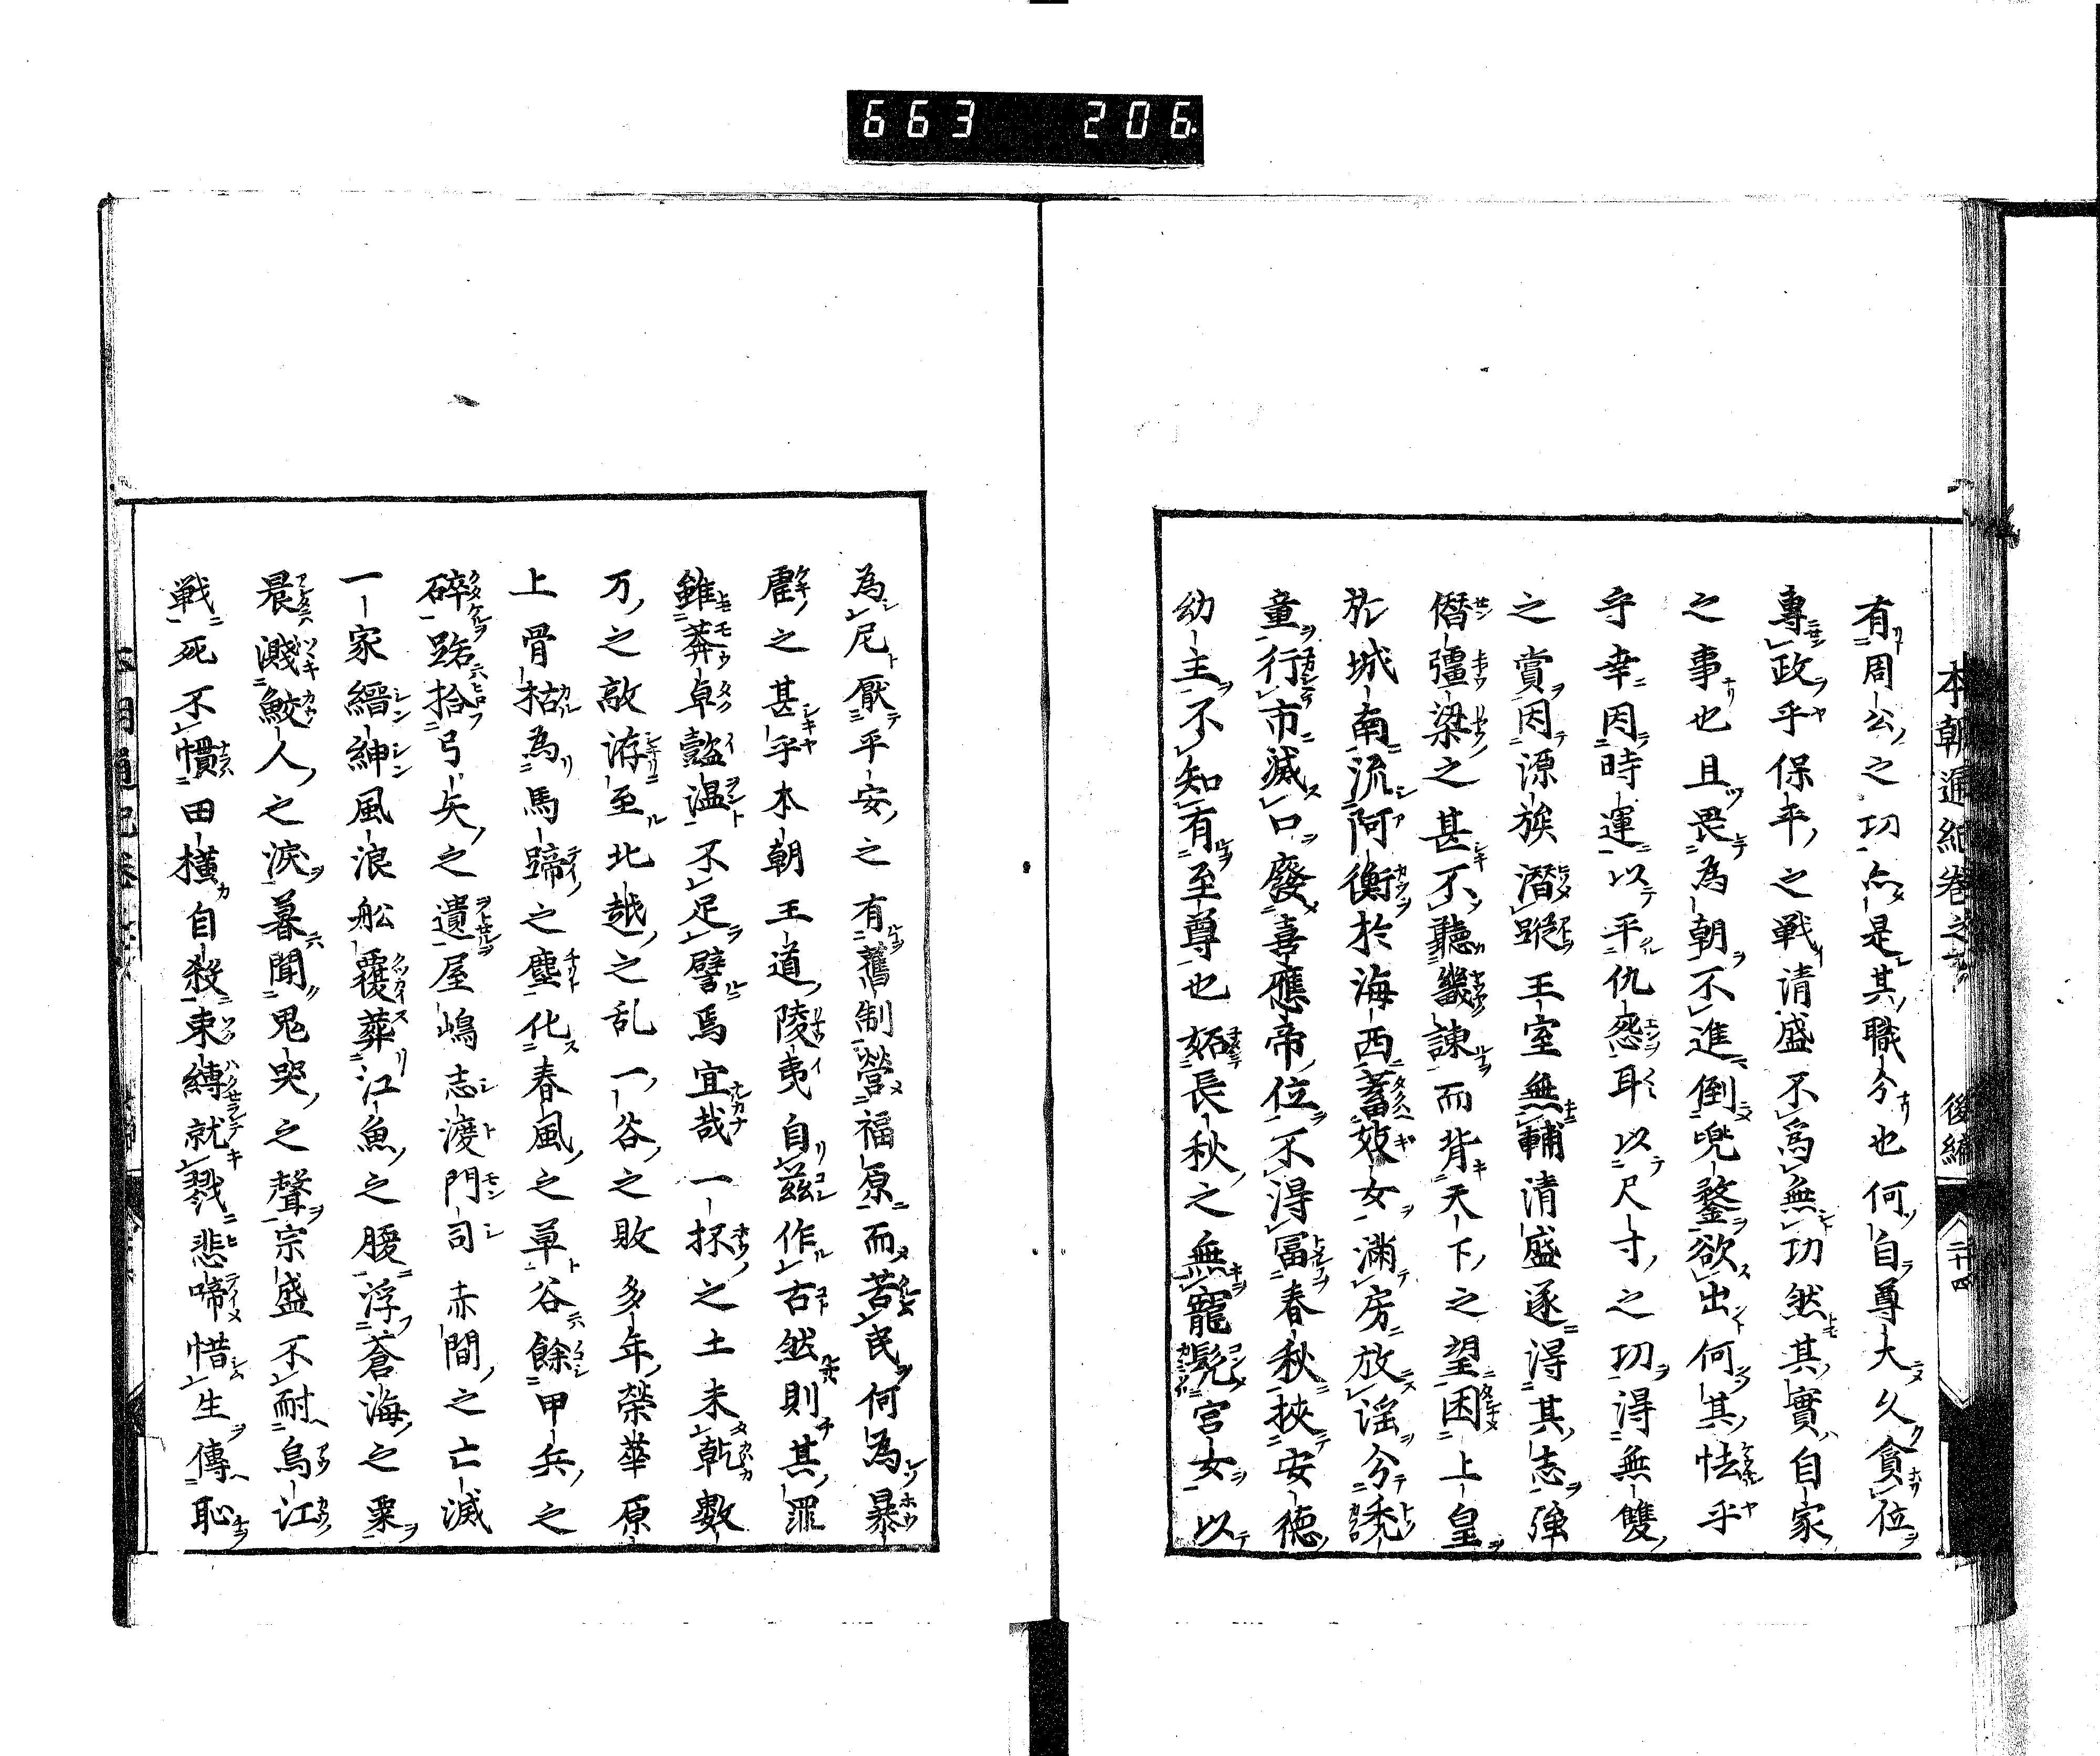 663 206
本朝通紀卷之 後編 二十四
有周公之功亦是其職分也何自尊大久貪位
專政乎保平之戰清盛不為無功然其實自家
之事也且畏為朝不進倒兜鍪欲出何其怯乎
守幸因時運以平仇怨耳以尺寸之功得無雙
之賞因源族潛蹤王室無輔清盛遂得其志強
僭彊梁之甚不聽畿諫而背天下之望困上皇
於城南流阿衡於海西蓄妓女滿房放謡分禿
童行市滅口廢喜應帝位不得冨春秋挾安德
幼主不知有至尊也妬長秋之無寵髡宮女以
為尼厭平安之有舊制營福原而苦民何為暴
虐之甚乎本朝王道陵夷自茲作古然則其罪
雖莽卓懿温不足譬焉宜哉一抔之土未乾數
万之敵洊至北越之乱一谷之敗多年榮華原
上骨枯為馬蹄之塵化春風之草谷餘甲兵之
碎踣拾弓矢之遺屋嶋志渡門司赤間之亡滅
一家縉紳風浪舩覆葬江魚之腹浮蒼海之粟
晨濺鮫人之淚暮聞鬼哭之聲宗盛不耐烏江
戦死不慣田横自殺束縛就戮悲啼惜生傳恥